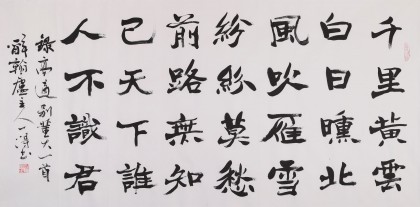 千里黄雲
白日曛北
風吹雁雪
紛紛莫愁
前路無知
己天下誰
人不識君
錄高適別董大一首
翰廬主人一